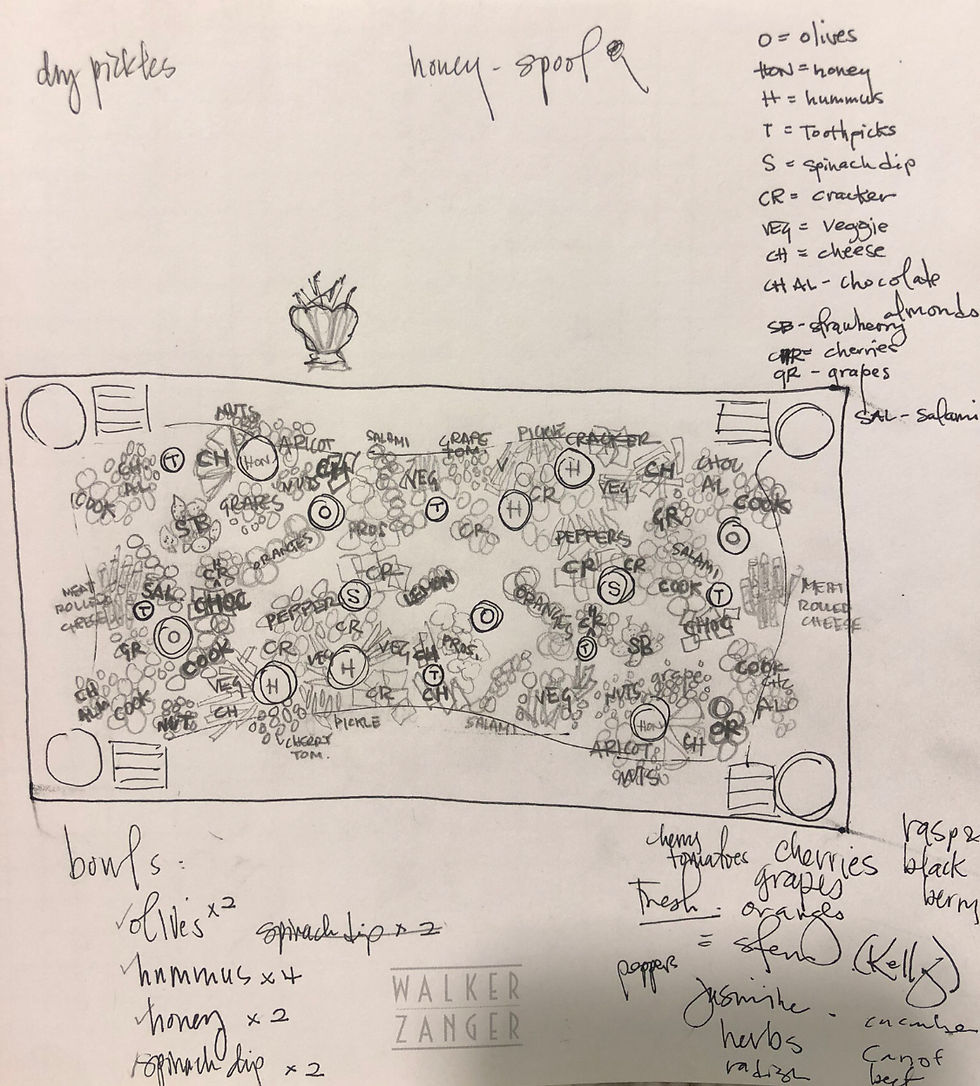 dry pickles
honey - spool
O = olives
HON = honey
H = hummus
T = Toothpicks
S = spinach dip
CR = cracker
VEG = Veggie
CH = cheese
CH AL - chocolate
almonds
SB - strawberry
= cherries
GR - grapes
SAL - salami
NUTS
APRICOT
SALAMI
GRAPE
TOM.
PICKLE
CRACKER
CH
AL
T
CH
HON
NUTS
CH
VEG
H
CR
VEG
CH
CHOC
AL
COOK
GRAPES
SB
O
T
H
GR
COOK
PROS.
CR
PEPPERS
O
ORANGES
CR
CR
CR
SALAMI
MEAT
ROLLED
CHEESE
SAL
T
CHOC
PEPPER
S
LEMON
ORANGES
S
COOK
T
MEAT
ROLLED
CHEESE
O
CR
O
CR
CHOC
GR
COOK
CR
VEG
H
VEG
CH
PROS.
T
SB
CH
ALM
COOK
VEG
H
T
CH
VEG
NUTS
grape
COOK
CHC
AL
NUT
CH
CR
PICKLE
SALAMI
HON
GR
CHERRY
TOM.
APRICOT
CH
NUTS
bowls :
olives x2
spinach dip x 2
hummus x4
honey x 2
spinach dip x 2
WALKER
ZANGER
cherry
tomatoes
cherries
grapes
Fresh - oranges
rasp
black
berry
(Kelly)
jasmine
herbs
radish
carrot
beet